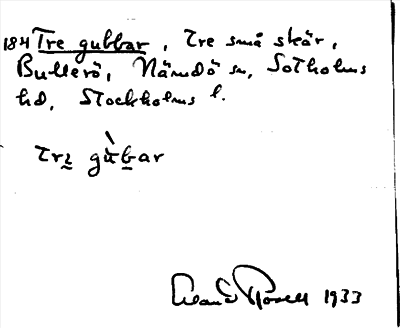 184 Tre gubbar, Tre små skär,
Bullerö, Nämdö sn, Sotholms
hd, Stockholms l.
trɛ gùbar
1933